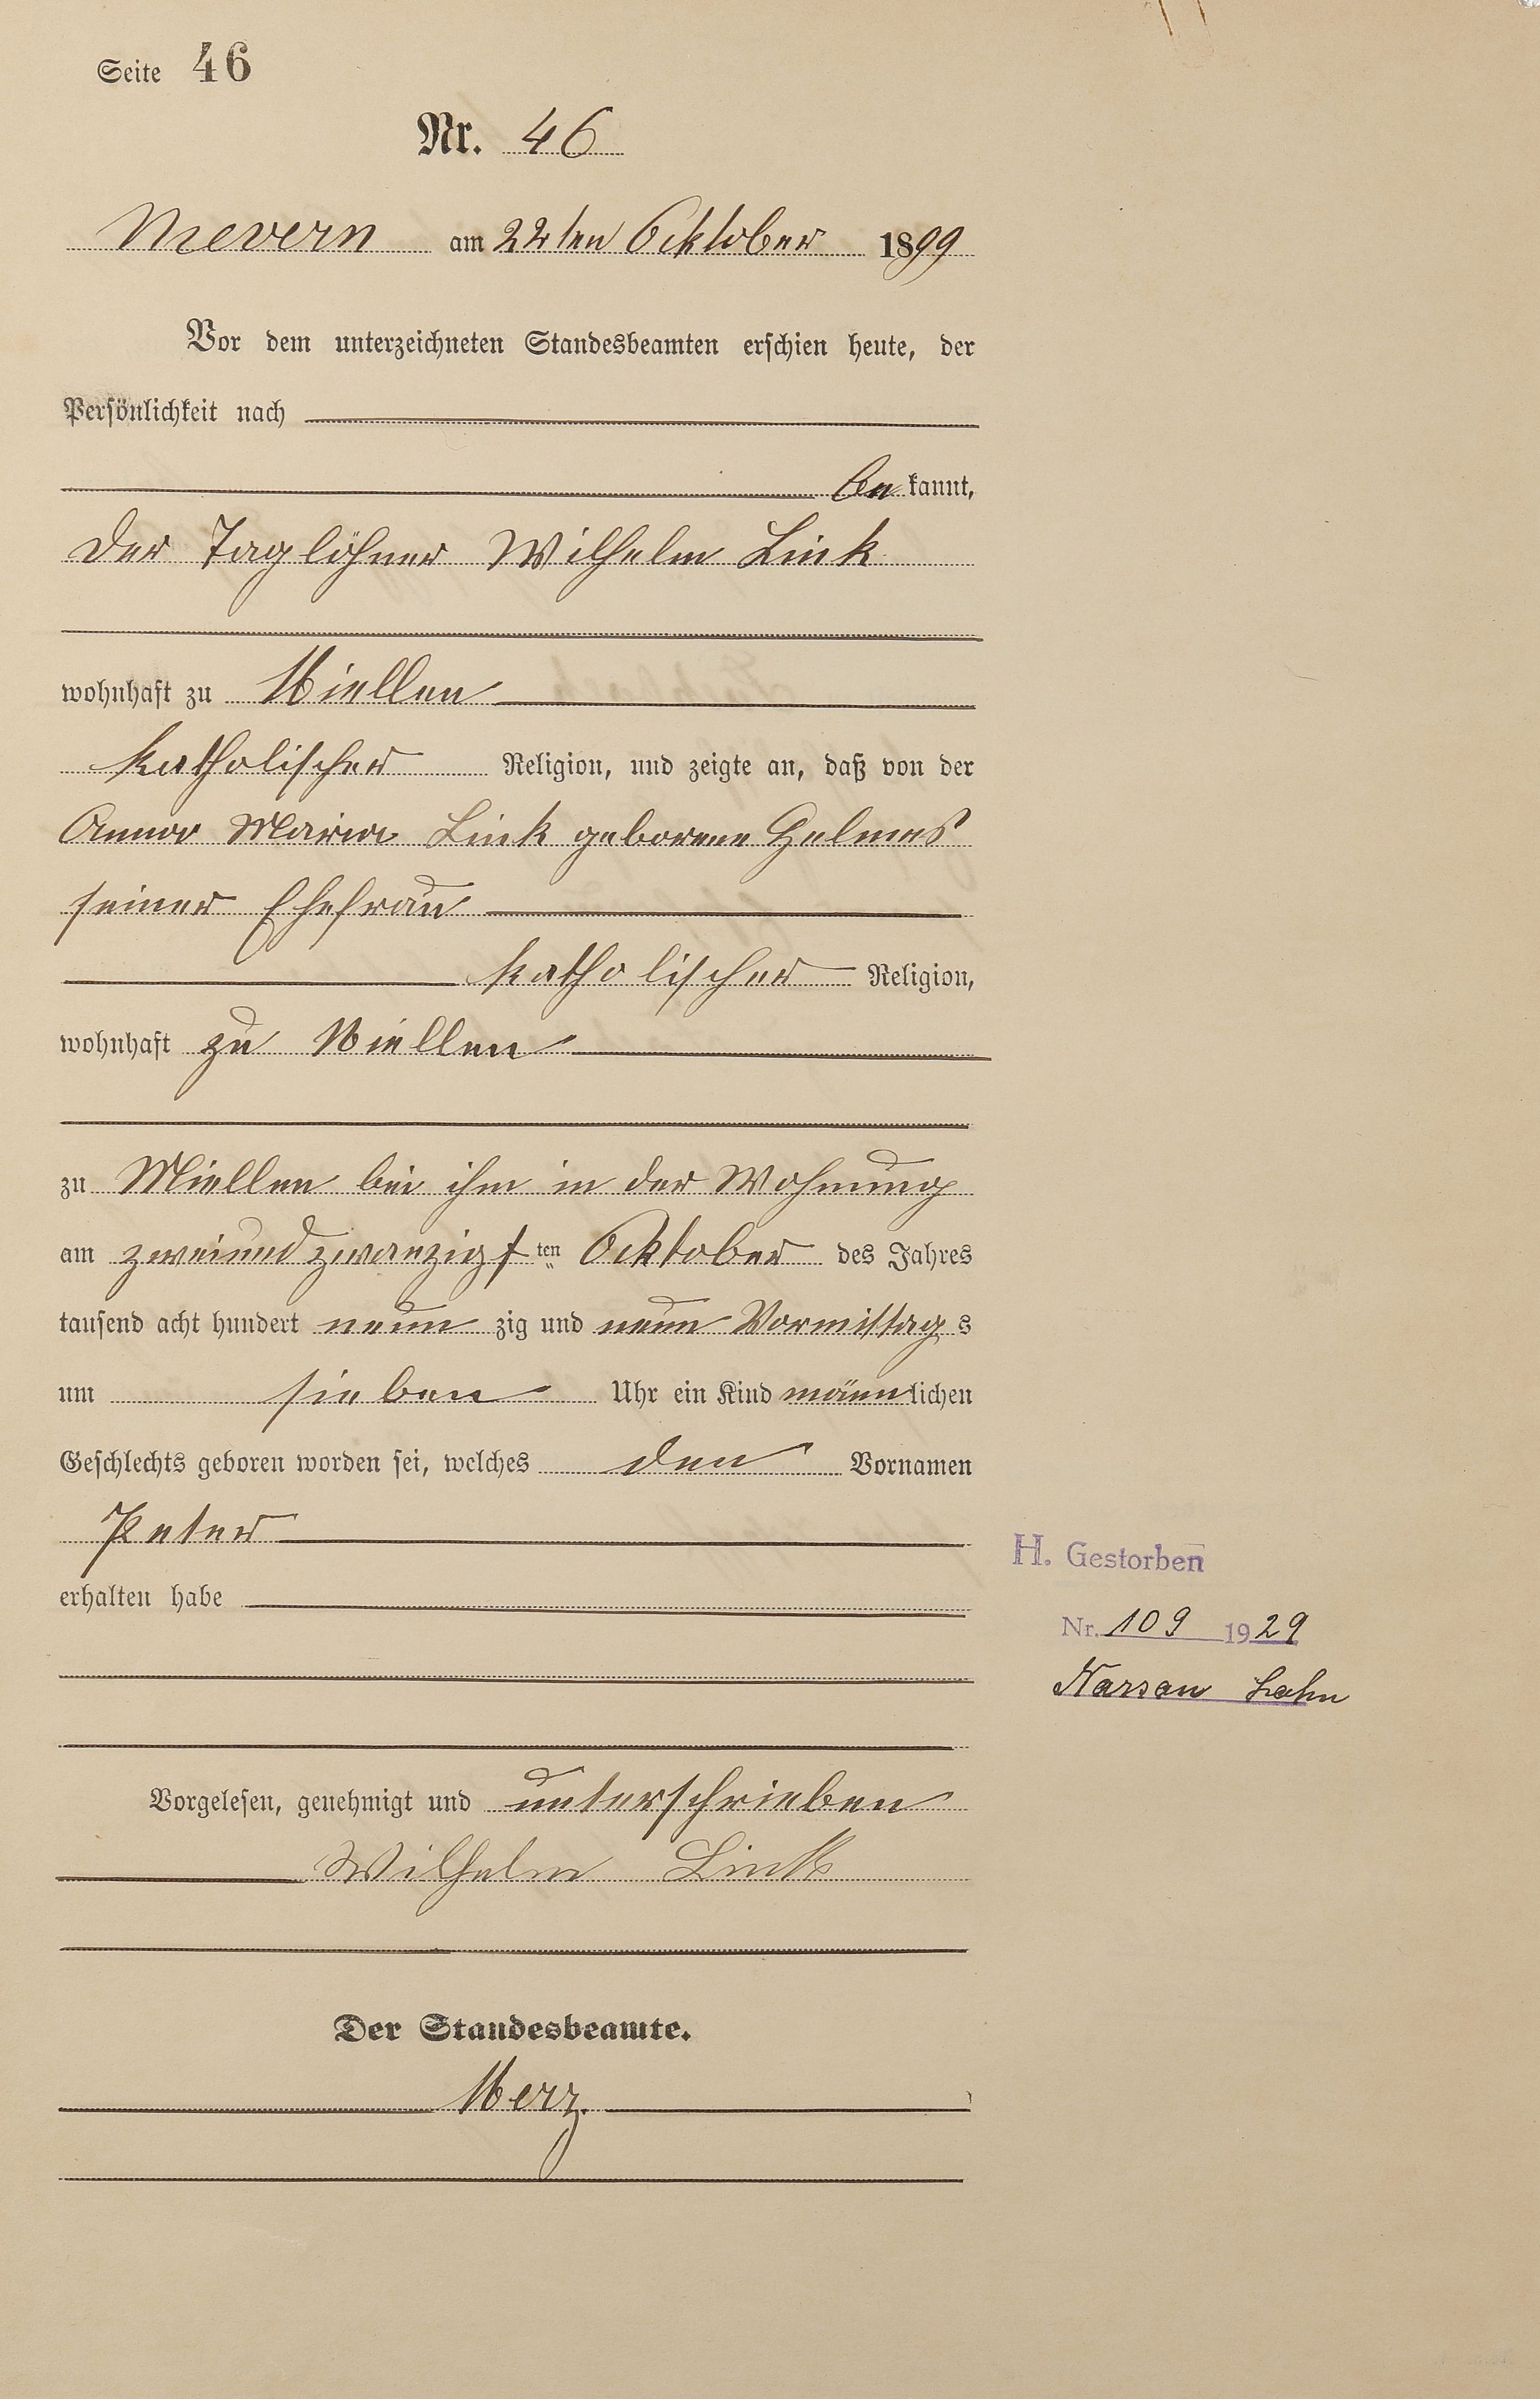 Seite 46
Nr. 46
Nievern am 22ten Ocktober 1899
Vor dem unterzeichneten Standesbeamten erschien heute, der
Persönlichkeit nach
be kannt,
der Taglöhner Wilhelm Link
wohnhaft zu Miellen
katholischer Religion, und zeigte an, daß von der
Anna Maria Link geborene Helmes
seiner Ehefrau
katholischer Religion,
wohnhaft zu Miellen
zu Miellen bei ihm in der Wohnung
am zweiundzwanzigsten Ocktober des Jahres
tausend acht hundert neun zig und neun Vormittags
um sieben Uhr ein Kind männlichen
Geschlechts geboren worden sei, welches den Vornamen
Peter
H. Gestorben
erhalten habe
Nr. 109 1929
Nassau Lahn
Vorgelesen, genehmigt und unterschrieben
Wilhelm Link
Der Standesbeamte.
Merz.